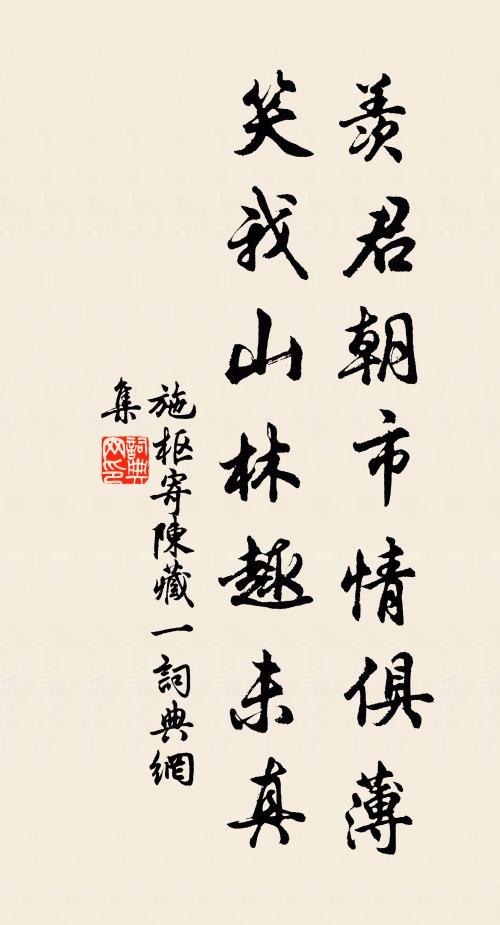 羨君朝市情俱薄
笑我山林趣未真
施枢寄陳藏一詞典網
集
詞典
网印